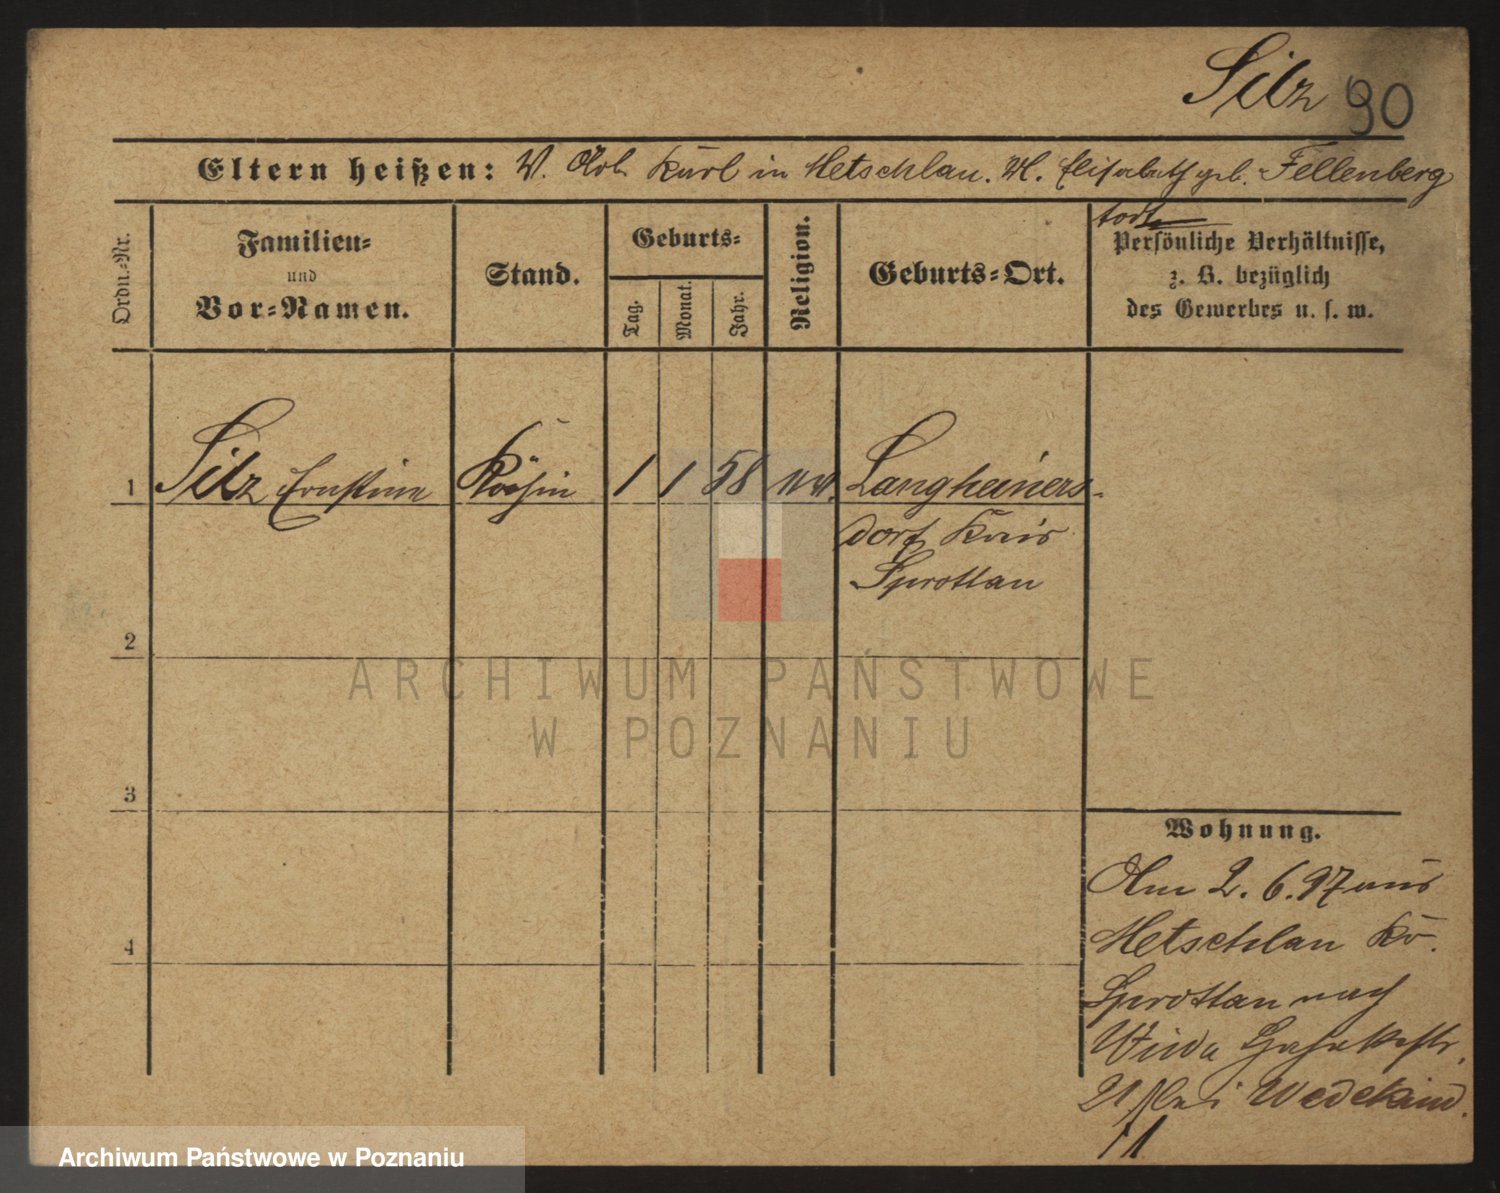 Silz 90
Eltern heißen: V. Arb. Karl in Metschlau. M. Elisabeth geb. Fellenberg
todt
Ordn.-Nr.
Familien-
und
Vor-Namen.
Stand.
Geburts-
Tag.
Monat.
Jahr.
Religion.
Geburts-Ort.
Persönliche Verhältnisse,
z. B. bezüglich
des Gewerbes u. s. w.
1 Silz Ernstine Köchin 1 1 58 ev. Langheiners-
dorf Kreis
Sprottau
2
3
4
Wohnung.
Am 2. 6. 97 aus
Metschlau Kr.
Sprottau nach
Wilda
21 bei Wedekind.
ARCHIWUM PAŃSTWOWE
W POZNANIU
Archiwum Państwowe w Poznaniu